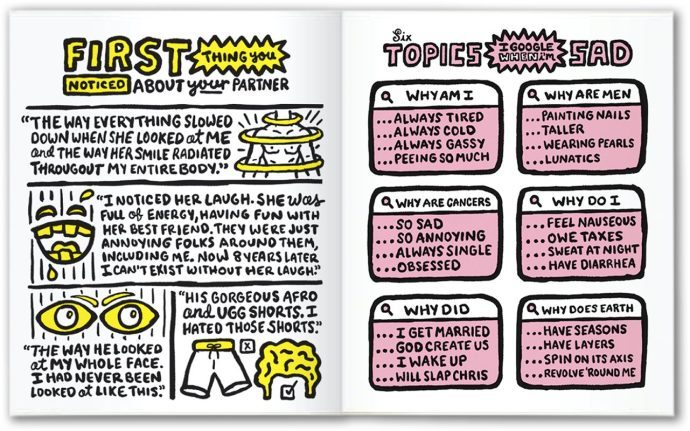 FIRST THING YOU
NOTICED ABOUT your PARTNER
"THE WAY EVERYTHING SLOWED
DOWN WHEN SHE LOOKED at ME
and THE WAY HER SMILE RADIATED
THROUGOUT MY ENTIRE BODY."
"I NOTICED HER LAUGH. SHE was
FULL of ENERGY, HAVING FUN WITH
HER BEST FRIEND. THEY WERE JUST
ANNOYING FOLKS AROUND THEM,
INCLUDING ME. NOW 8 YEARS LATER
I CAN'T EXIST WITHOUT HER LAUGH."
"THE WAY HE LOOKED
at MY WHOLE FACE.
I HAD NEVER BEEN
LOOKED at LIKE THIS."
"HIS GORGEOUS AFRO
and UGG SHORTS. I
HATED THOSE SHORTS."
X
Six
TOPICS I GOOGLE WHEN I'M SAD
WHY AM I
...ALWAYS TIRED
...ALWAYS COLD
...ALWAYS GASSY
...PEEING SO MUCH
WHY ARE MEN
...PAINTING NAILS
...TALLER
...WEARING PEARLS
...LUNATICS
WHY ARE CANCERS
...SO SAD
...SO ANNOYING
...ALWAYS SINGLE
...OBSESSED
WHY DO I
...FEEL NAUSEOUS
...OWE TAXES
...SWEAT AT NIGHT
...HAVE DIARRHEA
WHY DID
...I GET MARRIED
...GOD CREATE US
...I WAKE UP
...WILL SLAP CHRIS
WHY DOES EARTH
...HAVE SEASONS
...HAVE LAYERS
...SPIN ON ITS AXIS
...REVOLVE 'ROUND ME